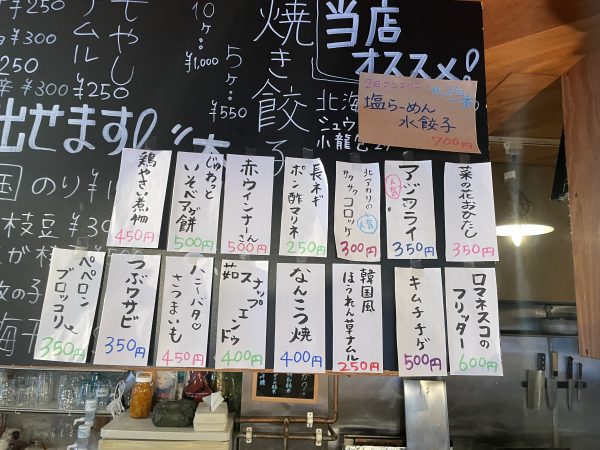 当店
オススメ!
焼き餃子
10ヶ…
¥1,000
5ヶ…
¥550
もやし
ナムル
¥250
¥300
¥250
¥300
¥250
出せます!
のり
枝豆
北海
ジュウ
小龍包
2日 マンスリー
塩らーめん
水餃子
700円
菜の花おひたし
350円
アジフライ
人気
350円
北アカリの
サクサクコロッケ
人気
300円
長ネギ
ポン酢マリネ
250円
赤ウインナーさん
500円
じゅわっと
いそべアゲ餅
500円
鶏やさい煮物
450円
ロマネスコの
フリッター
600円
キムチチゲ
500円
韓国風
ほうれん草ナムル
250円
なんこつ焼
400円
茹スナップエンドウ
400円
ハニーバタ♡
さつまいも
450円
つぶワサビ
350円
ペペロン
ブロッコリー
350円